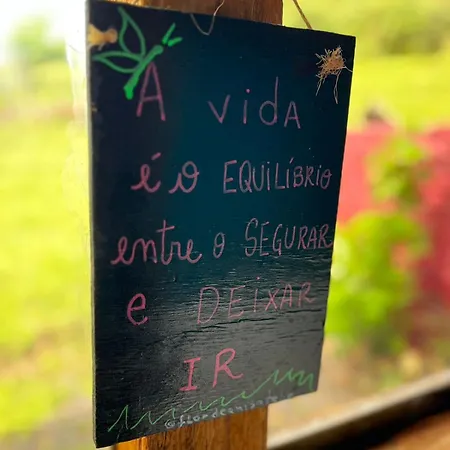 A vida
é o EQUILÍBRIO
entre o SEGURAR
e DEIXAR
IR